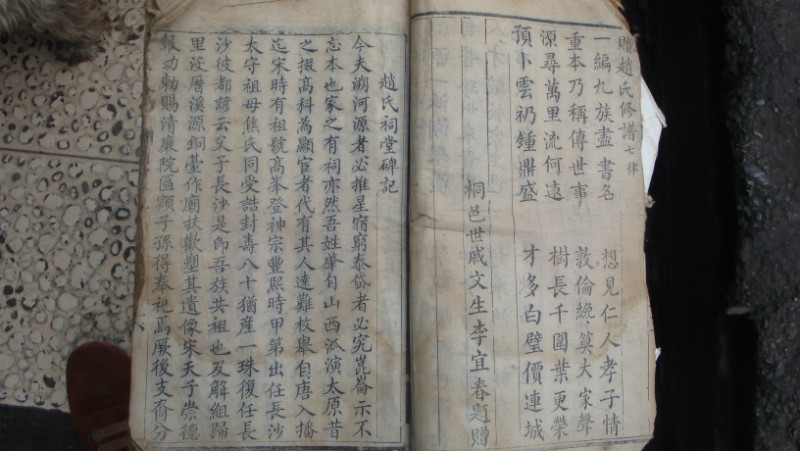 贈趙氏修譜七律
一編九族盡書名 想見仁人孝子情
重本乃稱傳世事 敦倫纔算大家聲
源尋萬里流何遠 樹長千圍葉更榮
預卜雲礽鍾鼎盛 才多白璧價連城
桐邑世戚文生李宜春題贈
趙氏祠堂碑記
今夫溯河源者必推星宿窮泰岱者必究崑崙示不
忘本也家之有祠亦然吾姓肇自山西派演太原昔
之掇高科為顯官者代有其人遠難枚舉自唐入播
迄宋時有祖號高峯登神宗豐熙時甲第出任長沙
太守祖母焦氏同受誥封壽八十猶産一珠復任長
沙彼都諺云父子長沙是即吾族共祖也及解組歸
里沒厝溪源銅臺作廟扶歡塑其遺像宋天子崇德
報功勅賜清廉院匾額子孫得奉祀焉厥後支裔分